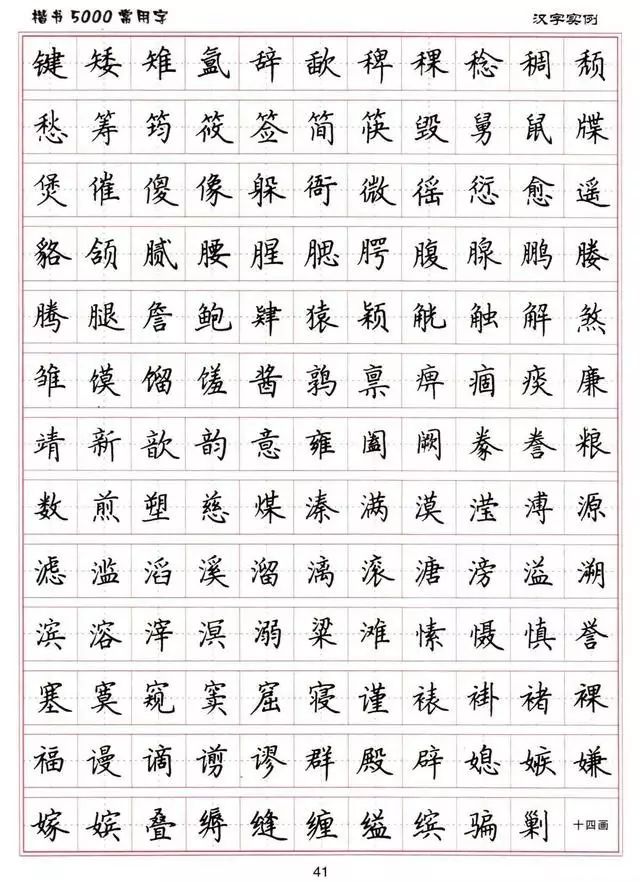 楷书5000常用字 汉字实例
键 矮 雉 氲 辞 歃 稗 稞 稔 稠 颓
愁 筹 筠 筱 签 简 筷 毁 舅 鼠 牒
煲 催 傻 像 躲 衙 微 徭 愆 愈 遥
貉 颌 腻 腰 腥 腮 腭 腹 腺 鹏 媵
腾 腿 詹 鲍 肄 猿 颖 觥 触 解 煞
雏 馍 馏 馐 酱 鹑 禀 痹 痼 痰 廉
靖 新 歆 韵 意 雍 阖 阙 豢 誊 粮
数 煎 塑 慈 煤 溱 满 漠 滢 溥 源
滤 滥 滔 溪 溜 漓 滚 溏 滂 溢 溯
滨 溶 滓 溟 溺 粱 滩 愫 慑 慎 誉
塞 寞 窥 窦 窟 寝 谨 裱 褂 褚 裸
福 谩 谪 谫 谬 群 殿 辟 媳 嫉 嫌
嫁 嫔 叠 缛 缝 缠 缢 缤 骗 剿 十四画
41